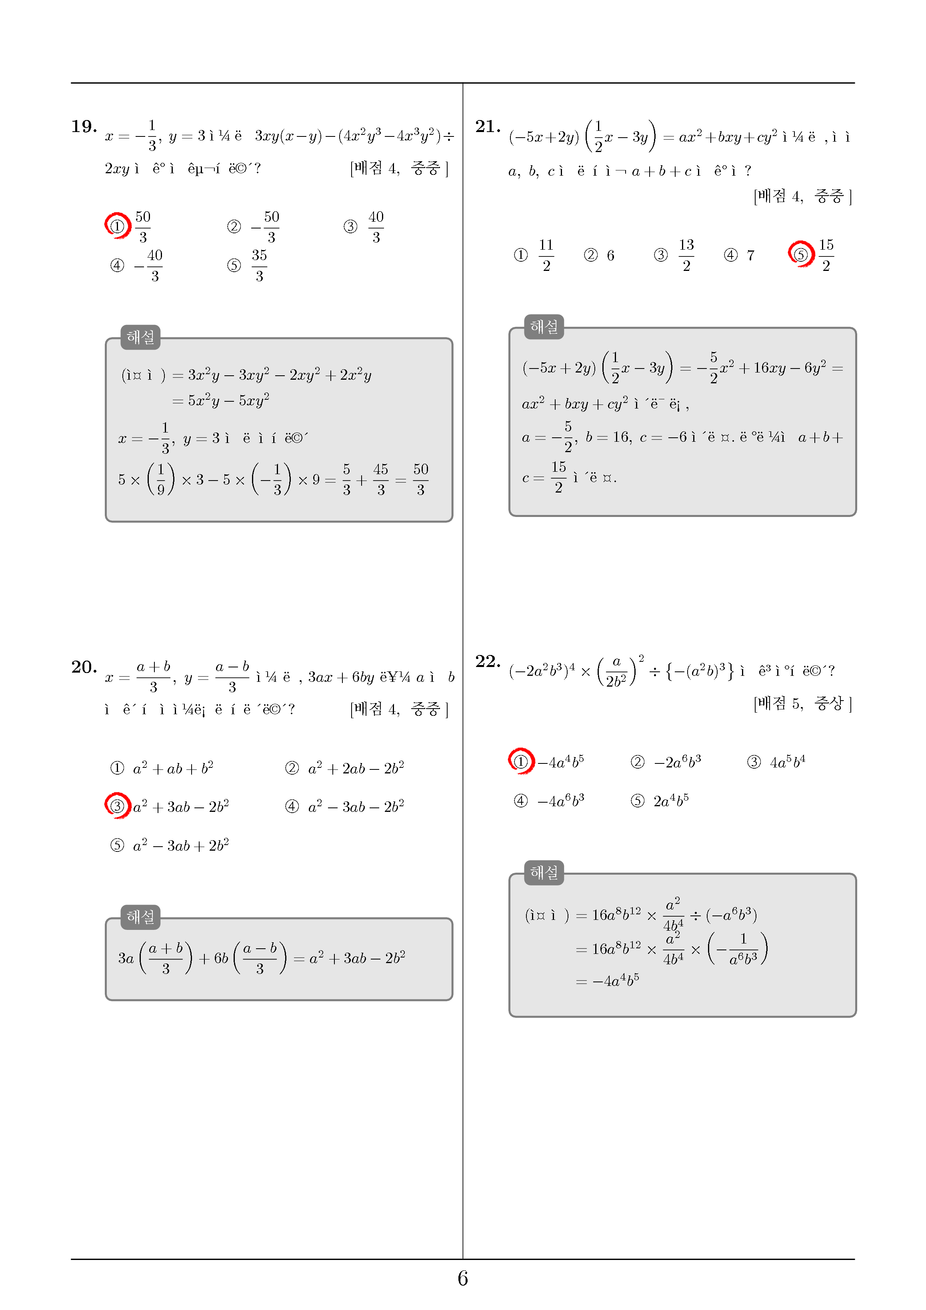 19. x = −1/3, y = 3 ì¼ ë 3xy(x−y)−(4x²y³−4x³y²)÷
2xy ì êº ì êµ¬í ë©´? [배점 4, 중중]
① 50/3 ② −50/3 ③ 40/3
④ −40/3 ⑤ 35/3
해설
(ì¤ ì ) = 3x²y − 3xy² − 2xy² + 2x²y
= 5x²y − 5xy²
x = −1/3, y = 3 ì ë ì í ë©´
5 × (1/9) × 3 − 5 × (−1/3) × 9 = 5/3 + 45/3 = 50/3
20. x = (a+b)/3, y = (a−b)/3 ì¼ ë , 3ax + 6by ë¥¼ a ì b
ì ê´ í ì ì¼ë¡ ë í ë ´ë©´? [배점 4, 중중]
① a² + ab + b² ② a² + 2ab − 2b²
③ a² + 3ab − 2b² ④ a² − 3ab − 2b²
⑤ a² − 3ab + 2b²
해설
3a((a+b)/3) + 6b((a−b)/3) = a² + 3ab − 2b²
21. (−5x+2y)(1/2x − 3y) = ax²+bxy+cy² ì¼ ë , ì ì
a, b, c ì ë í ì ¬ a + b + c ì êº ì ?
[배점 4, 중중]
① 11/2 ② 6 ③ 13/2 ④ 7 ⑤ 15/2
해설
(−5x + 2y)(1/2x − 3y) = −5/2x² + 16xy − 6y² =
ax² + bxy + cy² ì ´ë¯ ë¡ ,
a = −5/2, b = 16, c = −6 ì ´ë ¤. ë °ë ¼ì a + b +
c = 15/2 ì ´ë ¤.
22. (−2a²b³)⁴ × (a/2b²)² ÷ {−(a²b)³} ì ê³ ì °í ë©´?
[배점 5, 중상]
① −4a⁴b⁵ ② −2a⁶b³ ③ 4a⁵b⁴
④ −4a⁶b³ ⑤ 2a⁴b⁵
해설
(ì¤ ì ) = 16a⁸b¹² × a²/4b⁴ ÷ (−a⁶b³)
= 16a⁸b¹² × a²/4b⁴ × (−1/a⁶b³)
= −4a⁴b⁵
6